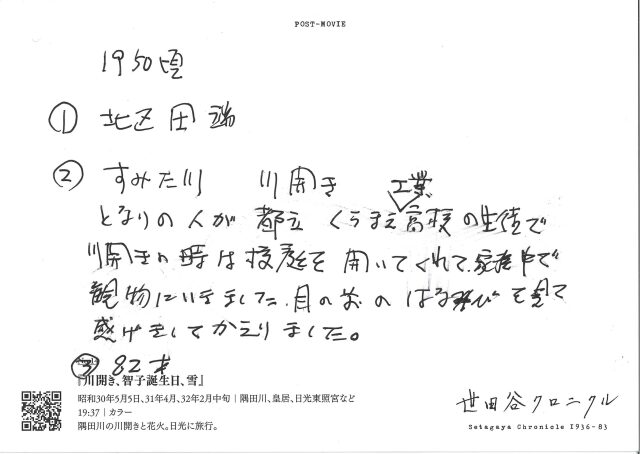 POST-MOVIE
1950頃
① 北区田端
② すみだ川 川開き
となりの人が都立くらまえ工業高校の生徒で
川開きの時は校庭を開いてくれて、家庭中で
見物にいきました。目の前の はなびを見て
感げきしてかえりました。
③ 82才
『川開き、智子誕生日、雪』
昭和30年5月5日、31年4月、32年2月中旬|隅田川、皇居、日光東照宮など
19:37|カラー
隅田川の川開きと花火。日光に旅行。
世田谷クロニクル
Setagaya Chronicle 1936-83